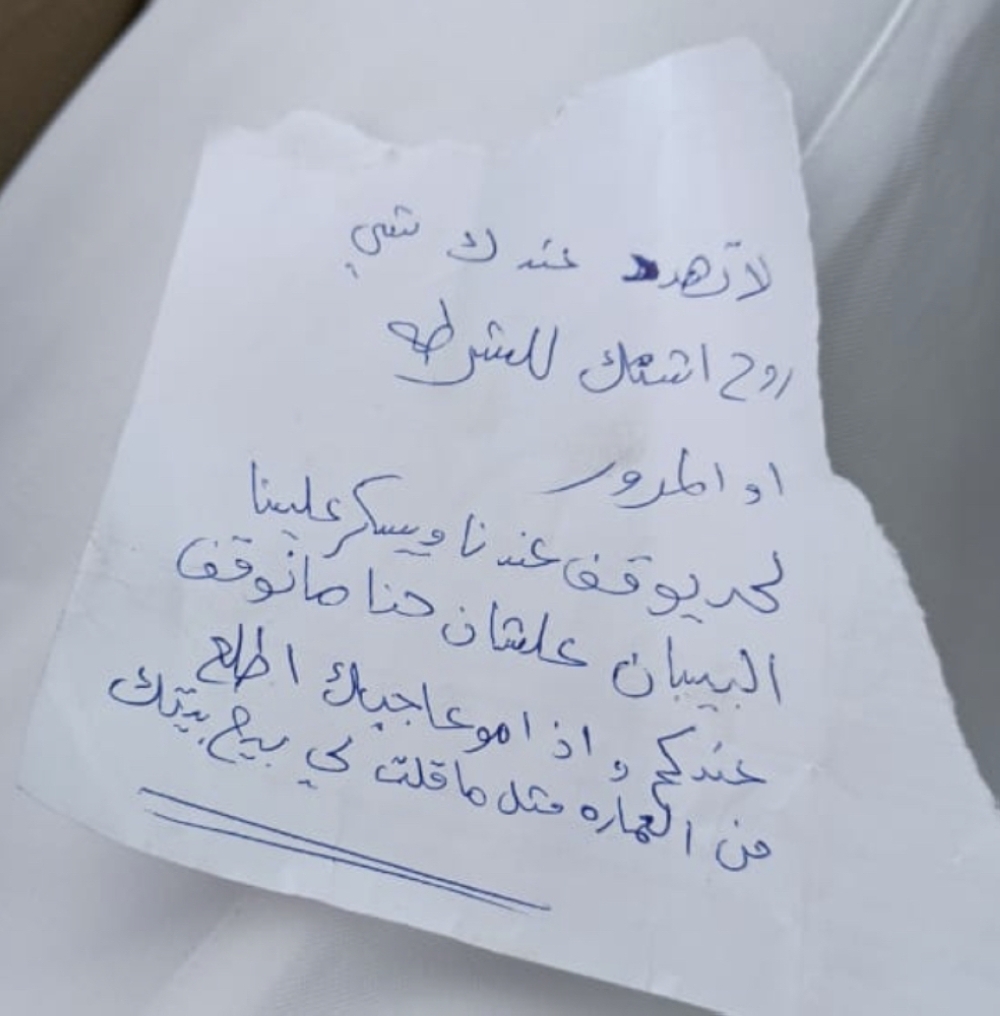 لا تهدد عندك شي
روح اشتك للشرطه
او المرور
لحد يوقف عندنا ويسكر علينا
البيبان علشان حنا ما نوقف
عندكم و اذا مو عاجبك اطلع
من العماره مثل ما قلت لي بيع بيتك